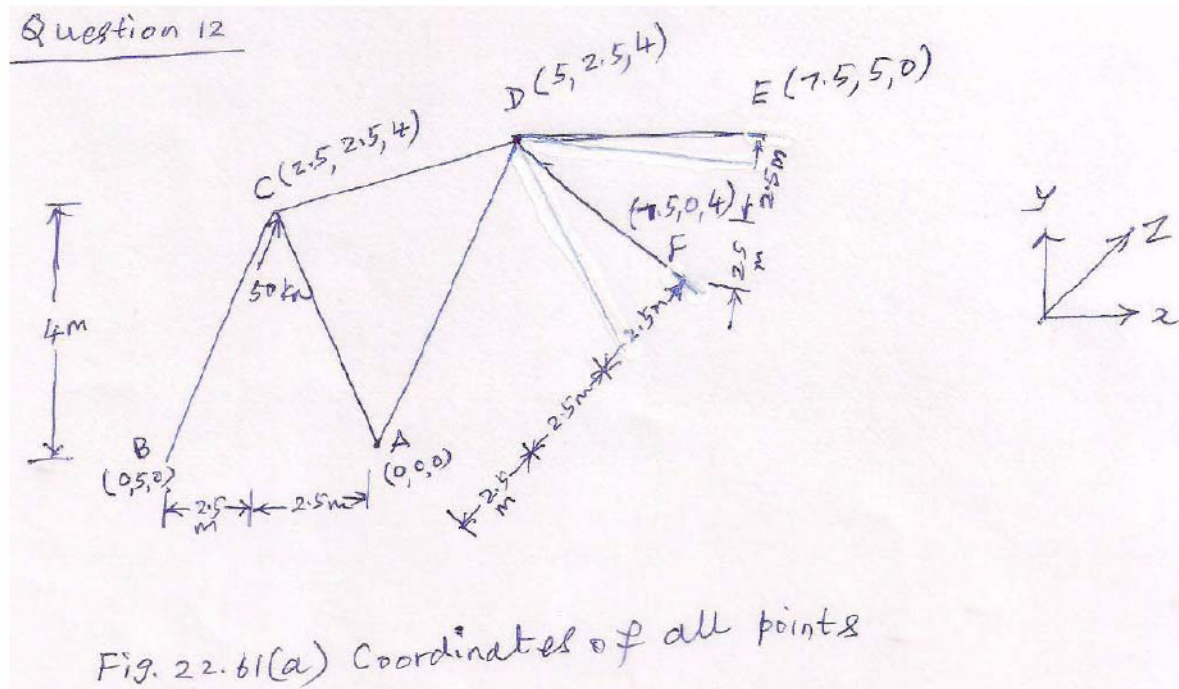 Question 12
D (5, 2.5, 4)
E (7.5, 5, 0)
C (2.5, 2.5, 4)
2.5m
(7.5, 0, 4)
2.5
m
F
y
z
x
50kn
4m
2.5m
2.5m
2.5
m
B
(0,5,0)
A
(0,0,0)
2.5
m
2.5m
Fig. 22.61(a) Coordinates of all points